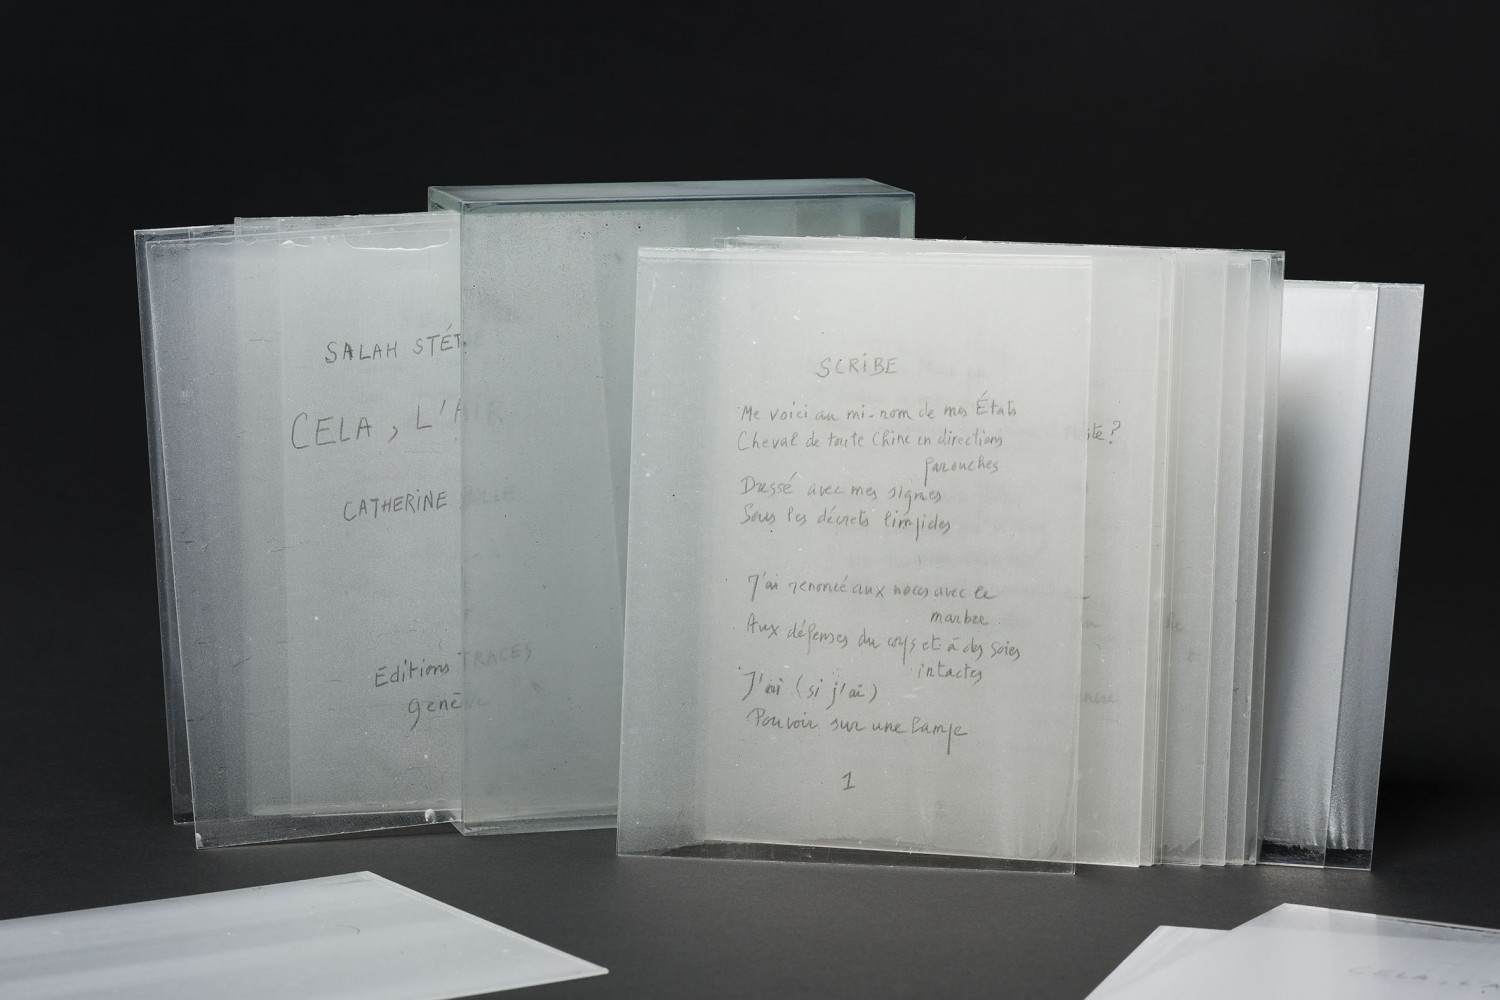 SALAH STÉT
CELA, L'AIR
CATHERINE BOLLE
Editions TRACES
genève
SCRIBE
Me voici au mi-nom de mes États
Cheval de toute Chine en directions
farouches
Dressé avec mes signes
Sous les décrets limpides
J'ai renoncé aux noces avec le
marbre
Aux défenses du corps et à des soies
intactes
J'ai (si j'ai)
Pouvoir sur une lampe
1
ite?
CELA, L'A